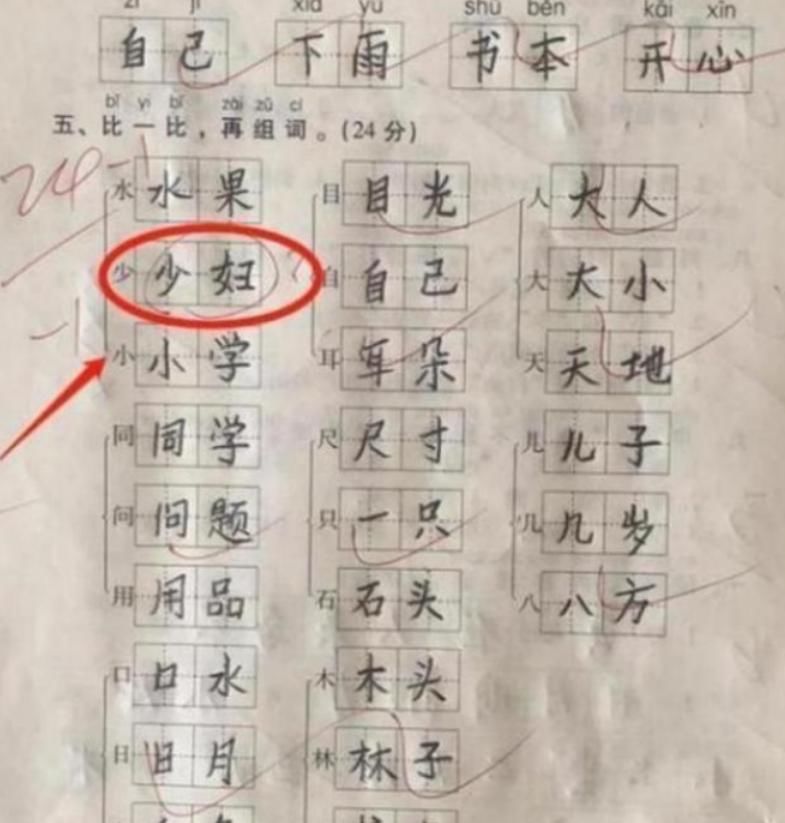 zì jǐ xià yǔ shū běn kāi xīn
自己 下雨 书本 开心
bǐ yi bǐ zài zǔ cí
五、比一比，再组词。(24分)
24-1
水 水果 目 目光 人 大人
少 少妇 自 自己 大 大小
-1
小 小学 耳 耳朵 天 天地
同 同学 尺 尺寸 儿 儿子
问 问题 只 一只 几 几岁
用 用品 石 石头 八 八方
口 口水 木 木头
日 日月 林 林子